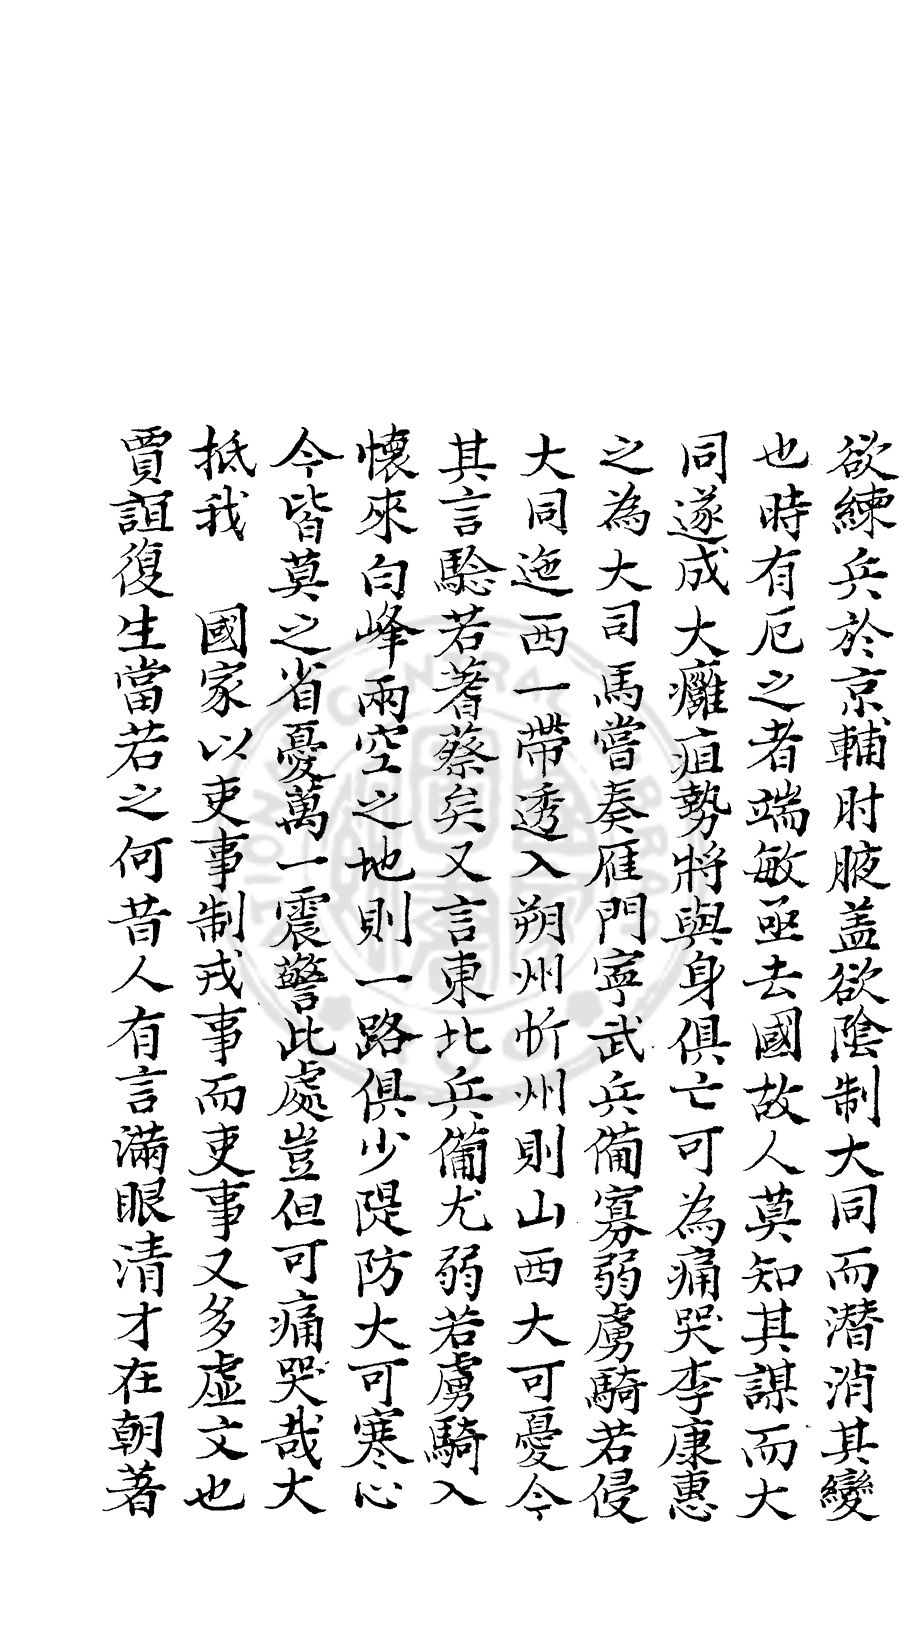 欲練兵於京輔肘腋盖欲陰制大同而潜消其變
也時有厄之者端敏亟去國故人莫知其謀而大
同遂成大癰疽勢將與身俱亡可為痛哭李康惠
之為大司馬嘗奏雁門寧武兵備寡弱虜騎若侵
大同迤西一帶透入朔州忻州則山西大可憂今
其言騐若蓍蔡矣又言東北兵備尤弱若虜騎入
懷來白峰兩空之地則一路俱少隄防大可寒心
今皆莫之省憂萬一震警此處豈但可痛哭哉大
抵我　國家以吏事制戎事而吏事又多虛文也
賈誼復生當若之何昔人有言滿眼清才在朝著